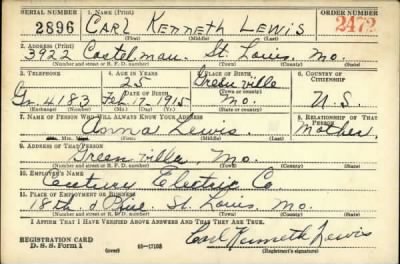 SERIAL NUMBER 1. NAME (Print) ORDER NUMBER
2896 CARL KENNETH LEWIS 2472
(First) (Middle) (Last)
2. ADDRESS (Print)
3922 Castelman. St. Louis, Mo.
(Number and street or R. F. D. number) (Town) (County) (State)
3. TELEPHONE 4. AGE IN YEARS 5. PLACE OF BIRTH 6. COUNTRY OF CITIZENSHIP
25 Greenville
DATE OF BIRTH (Town or county)
Gr. 4183 Feb. 17, 1915 Mo. U.S.
(Exchange) (Number) (Mo.) (Day) (Yr.) (State or country)
7. NAME OF PERSON WHO WILL ALWAYS KNOW YOUR ADDRESS 8. RELATIONSHIP OF THAT PERSON
Anna Lewis. Mother,
(Mr., Mrs., Miss) (First) (Middle) (Last)
9. ADDRESS OF THAT PERSON
Greenville, Mo.
(Number and street or R. F. D. number) (Town) (County) (State)
10. EMPLOYER'S NAME
Century Electric Co
11. PLACE OF EMPLOYMENT OR BUSINESS
18th. & Pine St. Louis. Mo.
(Number and street or R. F. D. number) (Town) (County) (State)
I AFFIRM THAT I HAVE VERIFIED ABOVE ANSWERS AND THAT THEY ARE TRUE.
REGISTRATION CARD
D. S. S. Form 1 (over) 16-17105 Carl Kenneth Lewis